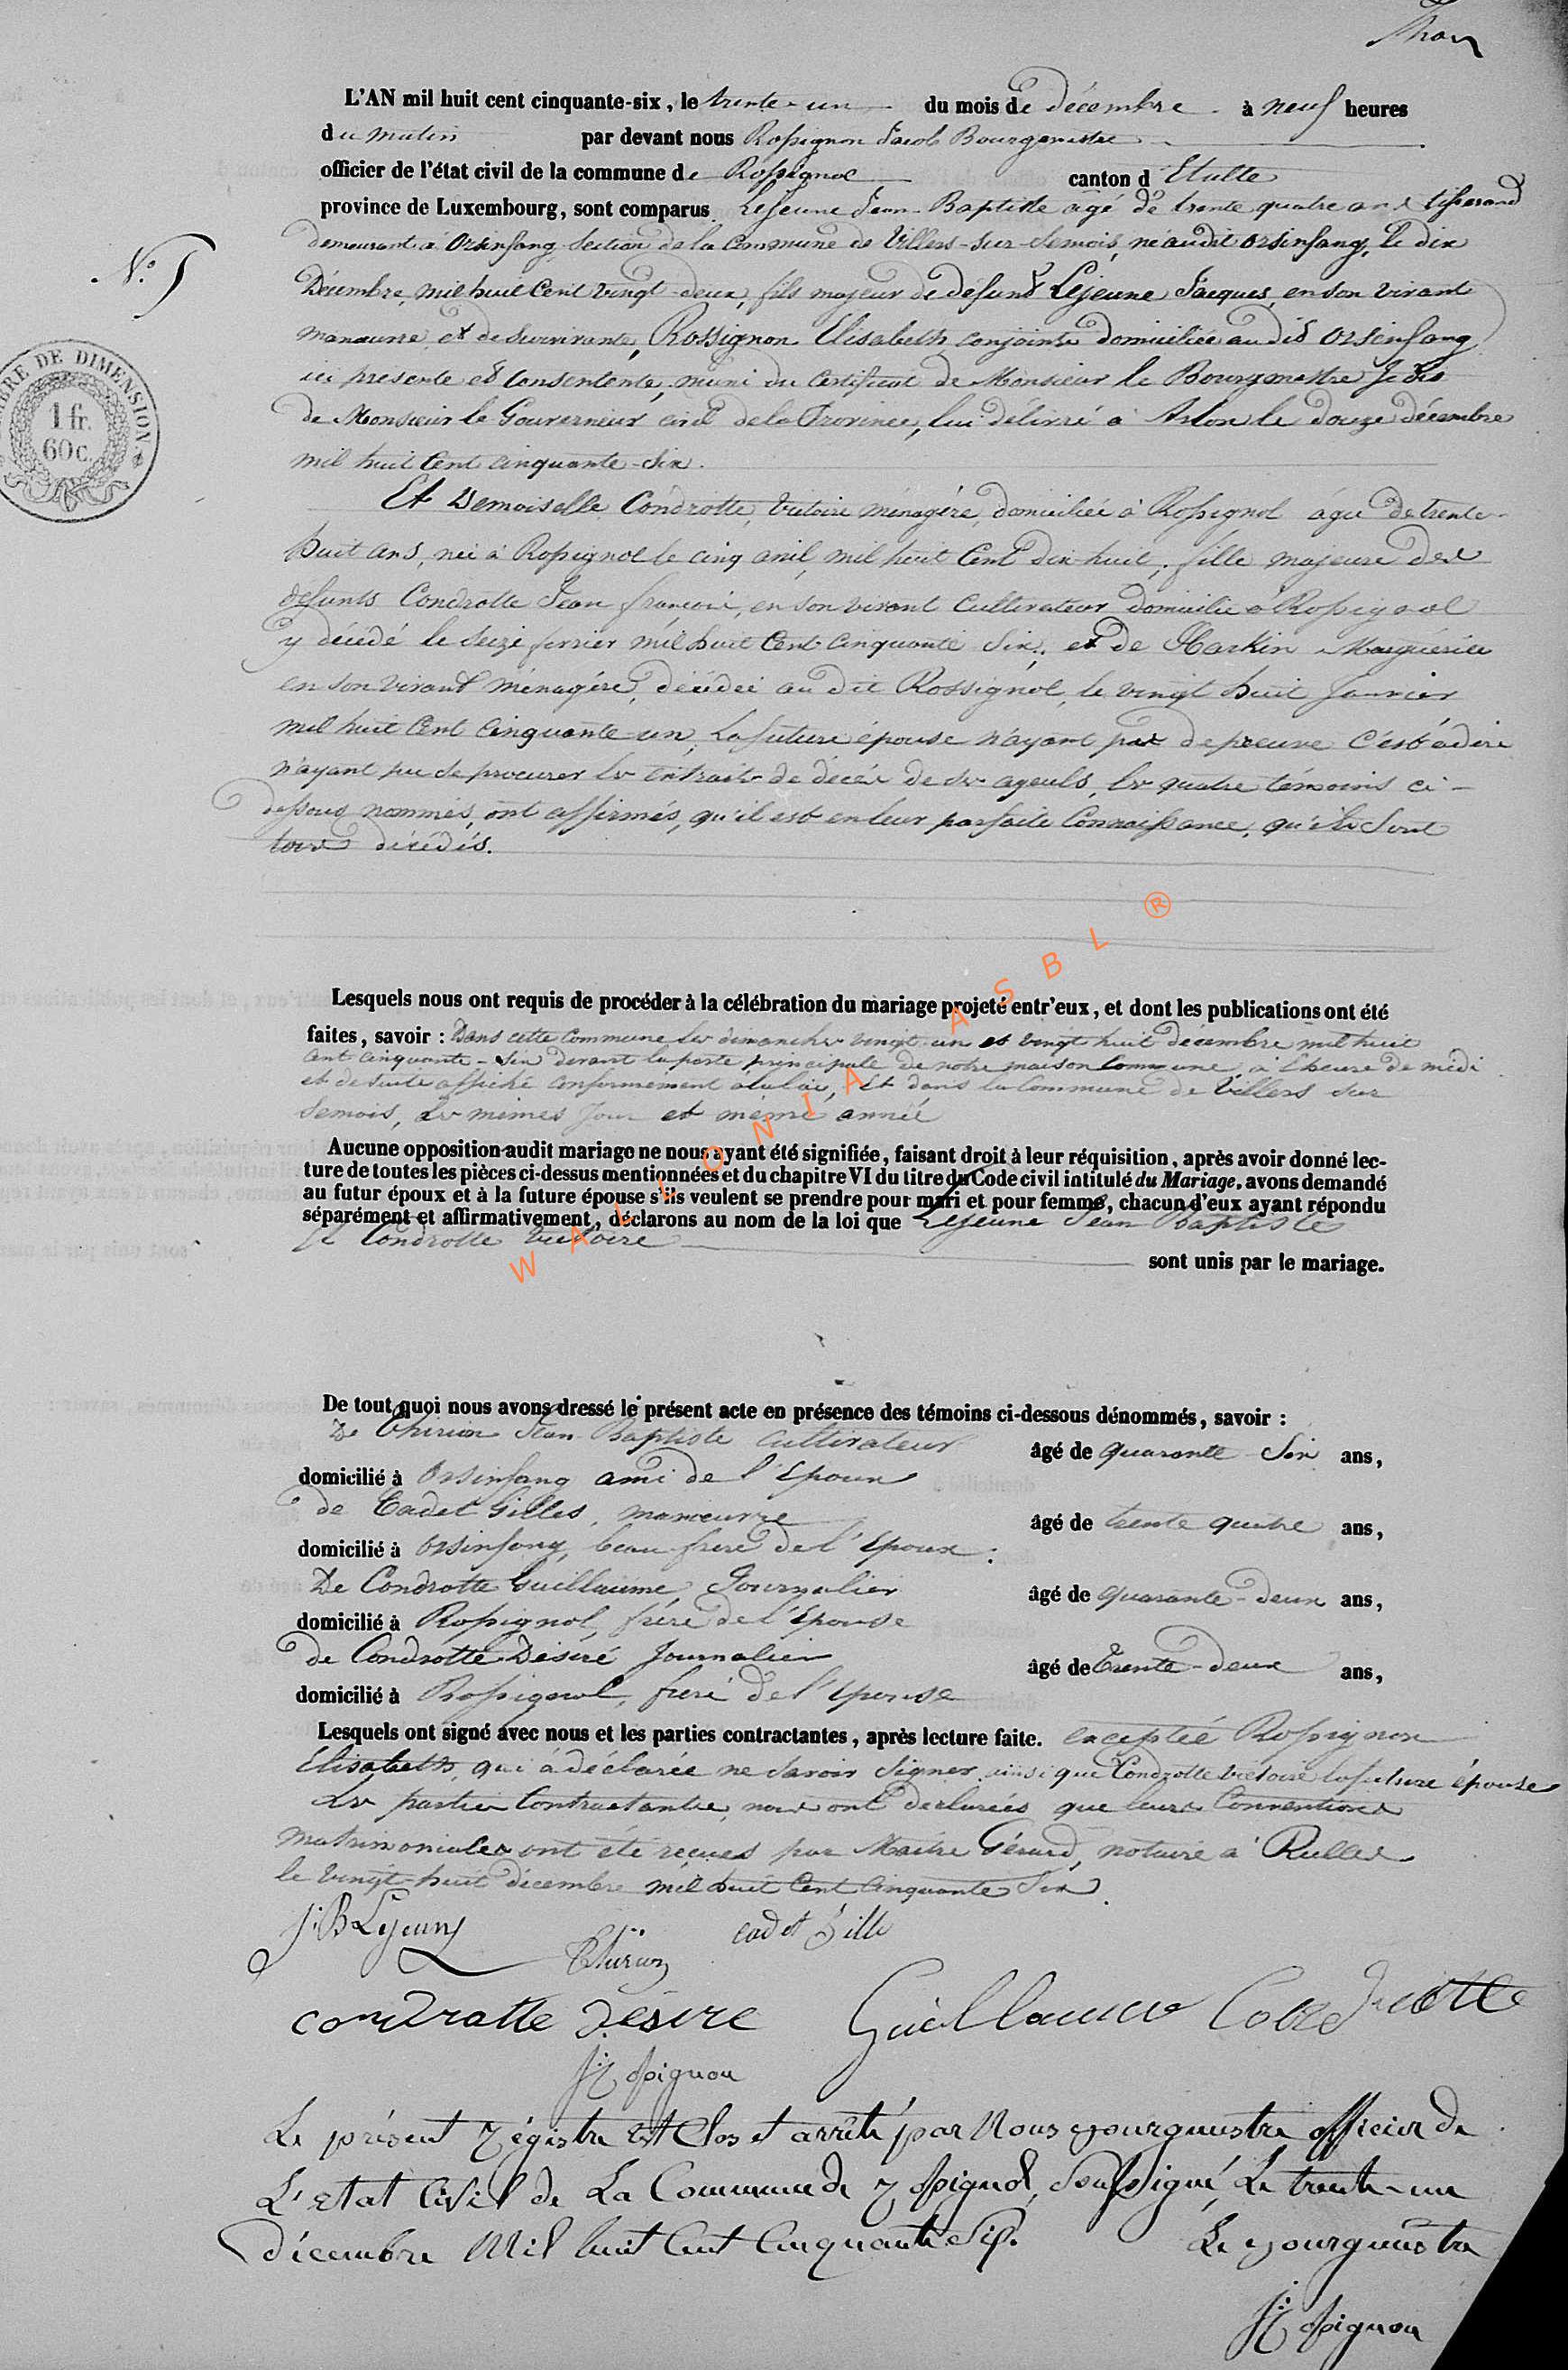 L'AN mil huit cent cinquante-six, le trente-un du mois de décembre à neuf heures
du matin par devant nous Rossignon Jacob Bourgmestre
officier de l'état civil de la commune de Rossignol canton d'Etalle
province de Luxembourg, sont comparus Lejeune Jean-Baptiste agé de trente quatre ans tisserand
demeurant à Orsinfaing Section de la Commune de Villers-sur-Semois, né audit Orsinfang, le dix
Décembre, mil huit Cent vingt-deux, fils majeur de defunt Lejeune Jacques, en son vivant
manœuvre et de survivante, Rossignon Elisabeth conjointe domiciliée au dit Orsinfang
ici présente et Consentente, muni du Certificat de Monsieur le Bourgmestre
de Monsieur le Gouverneur civil de la Province, lui délivré à Arlon le douze décembre
mil huit Cent cinquante-six.
Et Demoiselle Condrotte, Victoire ménagère, domiciliée à Rossignol agée de trente-
huit ans, née à Rossignol le cinq avril, mil huit Cent dix-huit, fille majeure des
défunts Condrotte Jean françois, en son vivant Cultivateur domicilié à Rossignol
y décédé le Seize fevrier mil huit Cent Cinquante Six, et de Harkin Marguerite
en son vivant ménagère, décédée au dit Rossignol, le vingt huit Janvier
mil huit Cent Cinquante-un, La future épouse n'ayant pas de preuve C'est à dire
n'ayant pu se procurer les extraits de décès de ses ayeuls, les quatre témoins ci-
dessous nommés, ont affirmés, qu'il est en leur parfaite Connaissance, qu'ils Sont
tous décédés.
Nº 5
TIMBRE DE DIMENSION.
1 fr.
60 c.
Lesquels nous ont requis de procéder à la célébration du mariage projeté entr'eux, et dont les publications ont été
faites, savoir : Dans cette Commune les dimanches vingt-un et vingt-huit décembre mil huit
cent cinquante-six devant la porte principale de notre maison Commune, à l'heure de midi
et de suite affiché conformément à la loi, Et dans la Commune de Villers sur
Semois, les mêmes jour et même année
Aucune opposition audit mariage ne nous ayant été signifiée, faisant droit à leur réquisition, après avoir donné lec-
ture de toutes les pièces ci-dessus mentionnées et du chapitre VI du titre du Code civil intitulé du Mariage, avons demandé
au futur époux et à la future épouse s'ils veulent se prendre pour mari et pour femme, chacun d'eux ayant répondu
séparément et affirmativement, déclarons au nom de la loi que Lejeune Jean Baptiste
et Condrotte Victoire
sont unis par le mariage.
De tout quoi nous avons dressé le présent acte en présence des témoins ci-dessous dénommés, savoir :
De Thirion Jean-Baptiste Cultivateur âgé de quarante-Six ans,
domicilié à Orsinfang ami de l'Epoux
de Cadet Gilles, manœuvre âgé de trente quatre ans,
domicilié à Orsinfang, beau-frère de l'Epoux.
De Condrotte Guillaume, Journalier âgé de quarante-deux ans,
domicilié à Rossignol, frère de l'Epouse
de Condrotte Désiré Journalier âgé de Trente-deux ans,
domicilié à Rossignol, frère de l'Epouse
Lesquels ont signé avec nous et les parties contractantes, après lecture faite. exceptée Rossignon
Elisabeth, qui a déclarée ne savoir Signer, ainsi que Condrotte Victoire la future épouse
Les parties Contractantes, nous ont déclarées que leurs Conventions
matrimoniales ont été reçues par Maitre Gérard, notaire à Rulles
le vingt-huit décembre mil huit Cent Cinquante Six.
J:B Lejeune
Thirion
cadet Gille
condrotte Désiré
Guillaume Condrotte
J: Rossignon
Le présent Régistre est Clos et arrêté par Nous Bourgmestre officier de
L'Etat Civil de La Commune de Rossignol, Soussigné, Le trente-un
décembre Mil huit Cent Cinquante Six. Le Bourgmestre
J: Rossignon
WALLONIA ASBL ®